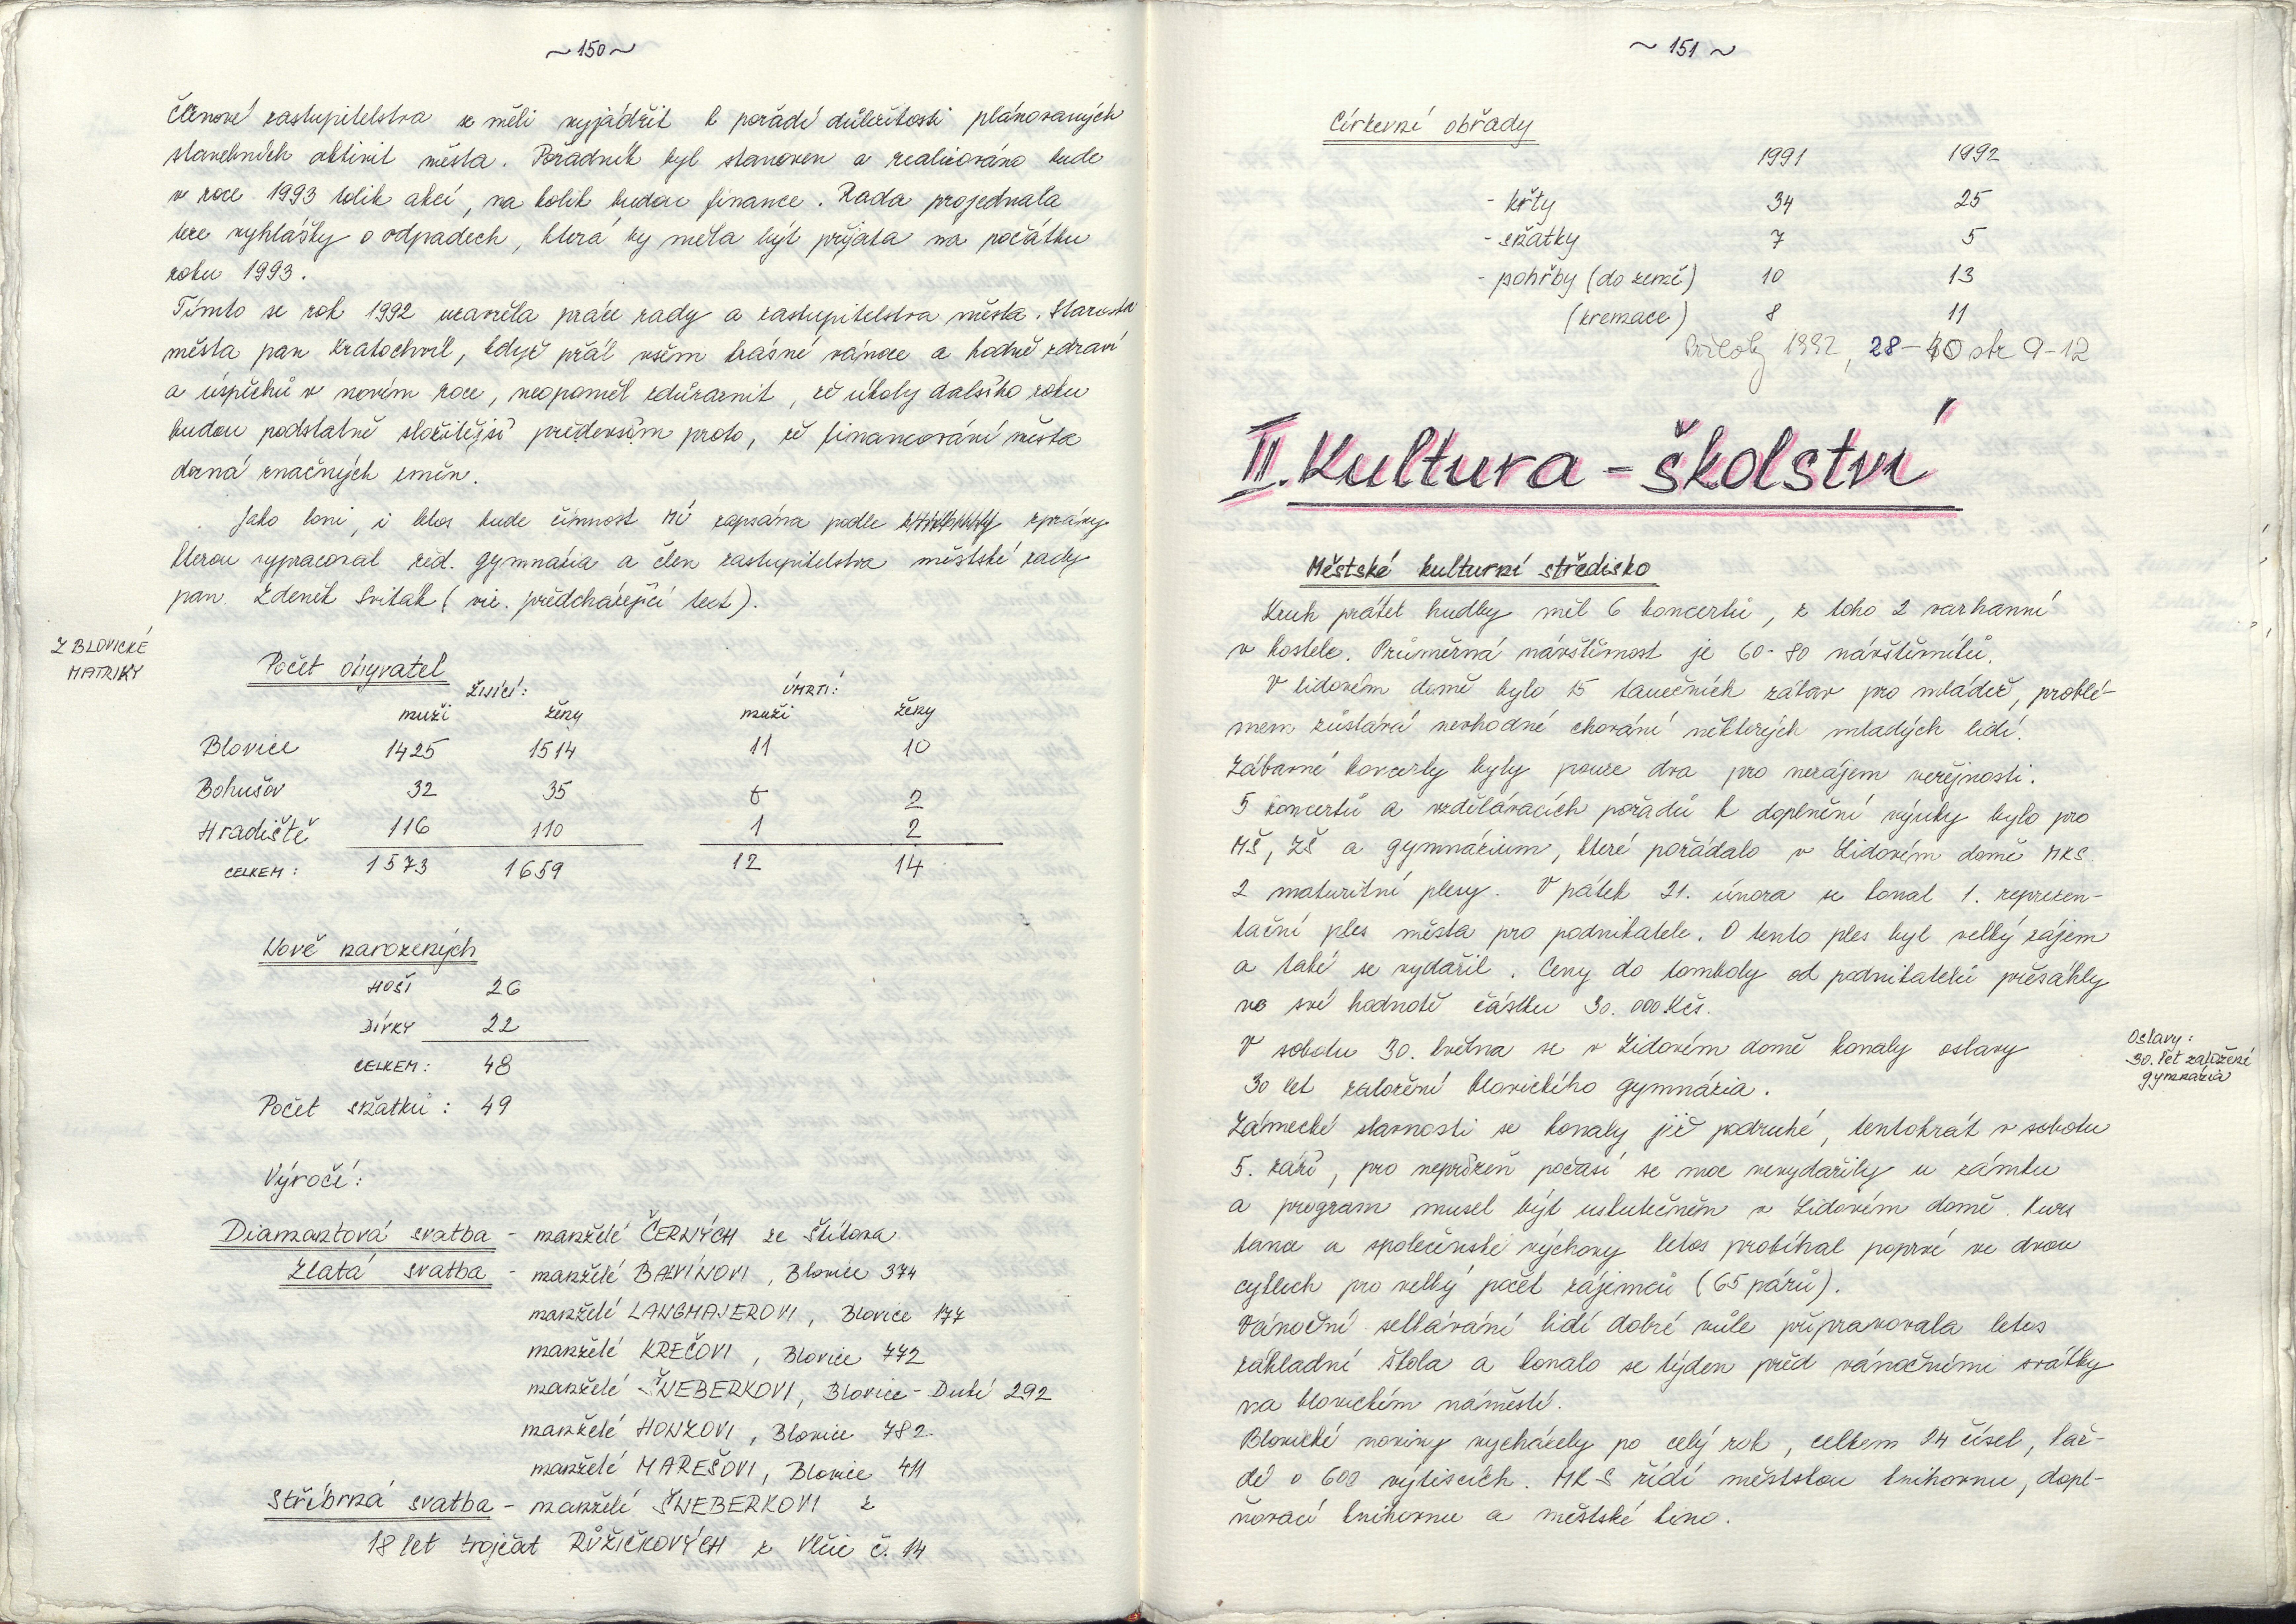 ~150~
Členové zastupitelstva se měli vyjádřit k pořadí důležitosti plánovaných
stavebních aktivit města. Pořadník byl stanoven a realizováno bude
v roce 1993 tolik akcí, na kolik budou finance. Rada projednala
teze vyhlášky o odpadech, která by měla být přijata na počátku
roku 1993.
Tímto se rok 1992 uzavřela práce rady a zastupitelstva města. Starosta
města pan Kratochvíl, když přál všem krásné vánoce a hodně zdraví
a úspěchů v novém roce, neopoměl zdůraznit, že úkoly dalšího roku
budou podstatně složitější především proto, že financování města
dozná značných změn.
Jako loni, i letos bude činnost MÚ zapsána podle zprávy
kterou vypracoval řed. gymnázia a člen zastupitelstva městské rady
pan Zdeněk Sviták (viz. předcházející text).
Z BLOVICKÉ
MATRIKY
Počet obyvatel
ŽIJÍCÍ: ÚMRTÍ:
muži ženy muži ženy
Blovice 1425 1514 11 10
Bohušov 32 35 0 2
Hradiště 116 110 1 2
CELKEM: 1573 1659 12 14
Nově narozených
HOŠI 26
DÍVKY 22
CELKEM: 48
Počet sňatků: 49
Výročí:
Diamantová svatba - manželé ČERNÝCH ze Štítova
Zlatá svatba - manželé BALVÍNOVI, Blovice 374
manželé LANGMAJEROVI, Blovice 177
manželé KREČOVI, Blovice 772
manželé ŠNEBERKOVI, Blovice - Dubí 292
manželé HONZOVI, Blovice 782
manželé MAREŠOVI, Blovice 411
Stříbrná svatba - manželé ŠNEBERKOVI z
18 let trojčat RŮŽIČKOVÝCH z Vlčic č. 14
~151~
Církevní obřady
1991 1992
- křty 34 25
- sňatky 7 5
- pohřby (do země) 10 13
(kremace) 8 11
Přílohy 1992, 28-40 str 9-12
II. Kultura - školství
Městské kulturní středisko
Kruh přátel hudby měl 6 koncertů, z toho 2 varhanní
v kostele. Průměrná návštěvnost je 60-80 návštěvníků.
V lidovém domě bylo 15 tanečních zábav pro mládež, problé-
mem zůstává nevhodné chování některých mladých lidí.
Zábavné koncerty byly pouze dva pro nezájem veřejnosti.
5 koncertů a vzdělávacích pořadů k doplnění výuky bylo pro
MŠ, ZŠ a gymnázium, které pořádalo v Lidovém domě MKS
2 maturitní plesy. V pátek 21. února se konal 1. reprezen-
tační ples města pro podnikatele. O tento ples byl velký zájem
a také se vydařil. Ceny do tomboly od podnikatelů přesáhly
ve své hodnotě částku 30.000 Kčs.
V sobotu 30. května se v Lidovém domě konaly oslavy
30 let založení blovického gymnázia.
Oslavy:
30. let založení
gymnázia
Zámecké slavnosti se konaly již podruhé, tentokrát v sobotu
5. září, pro nepřízeň počasí se moc nevydařily u zámku
a program musel být uskutečněn v Lidovém domě. Kurs
tance a společenské výchovy letos probíhal poprvé ve dvou
cyklech pro velký počet zájemců (65 párů).
Vánoční setkávání lidí dobré vůle připravovala letos
základní škola a konalo se týden před vánočními svátky
na blovickém náměstí.
Blovické noviny vycházely po celý rok, celkem 24 čísel, kaž-
dé o 600 výtiscích. MKS řídí městskou knihovnu, dopl-
ňovací knihovnu a městské kino.